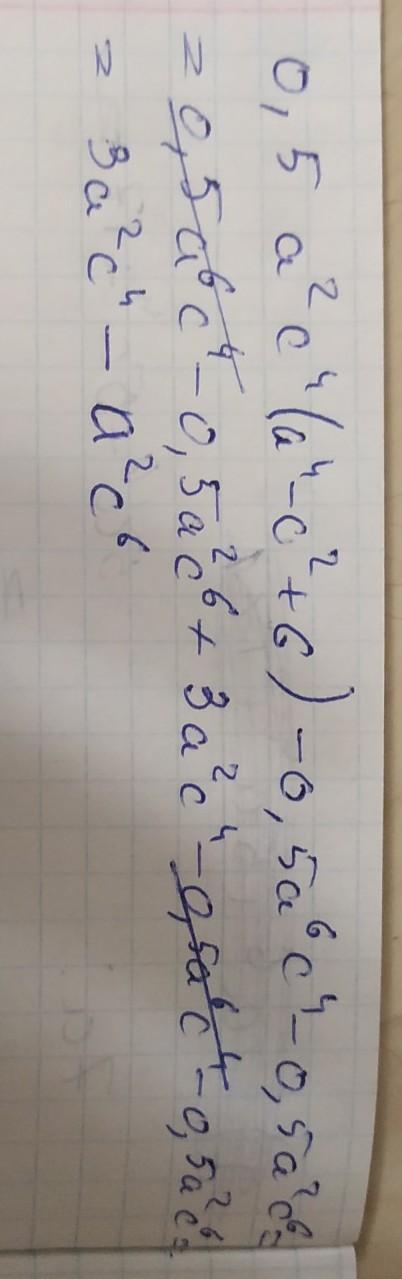 0,5 a²c⁴(a⁴-c²+6)-0,5a⁶c⁴-0,5a²c⁶=
= 0,5a⁶c⁴-0,5a²c⁶+3a²c⁴-0,5a⁶c⁴-0,5a²c⁶=
= 3a²c⁴-a²c⁶